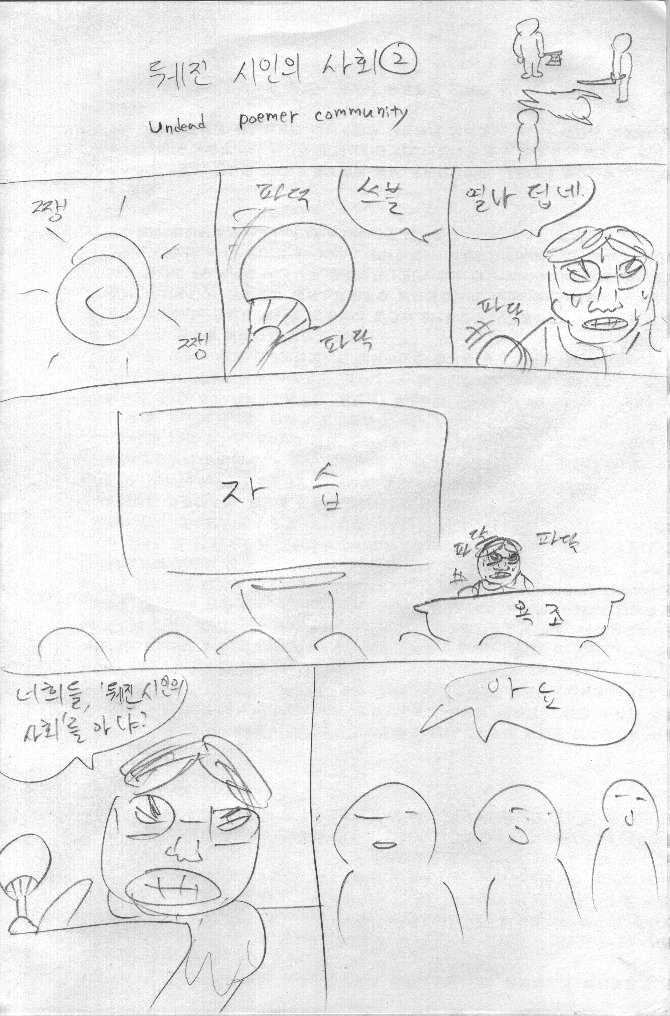 뒈진 시인의 사회 ②
undead poemer community
쨍
쨍
파덕
쓰블
파닥
열나 덥네
파닥
자습
파닥
파닥
욕조
너희들, '뒈진 시인의
사회'를 아냐?
아뇨